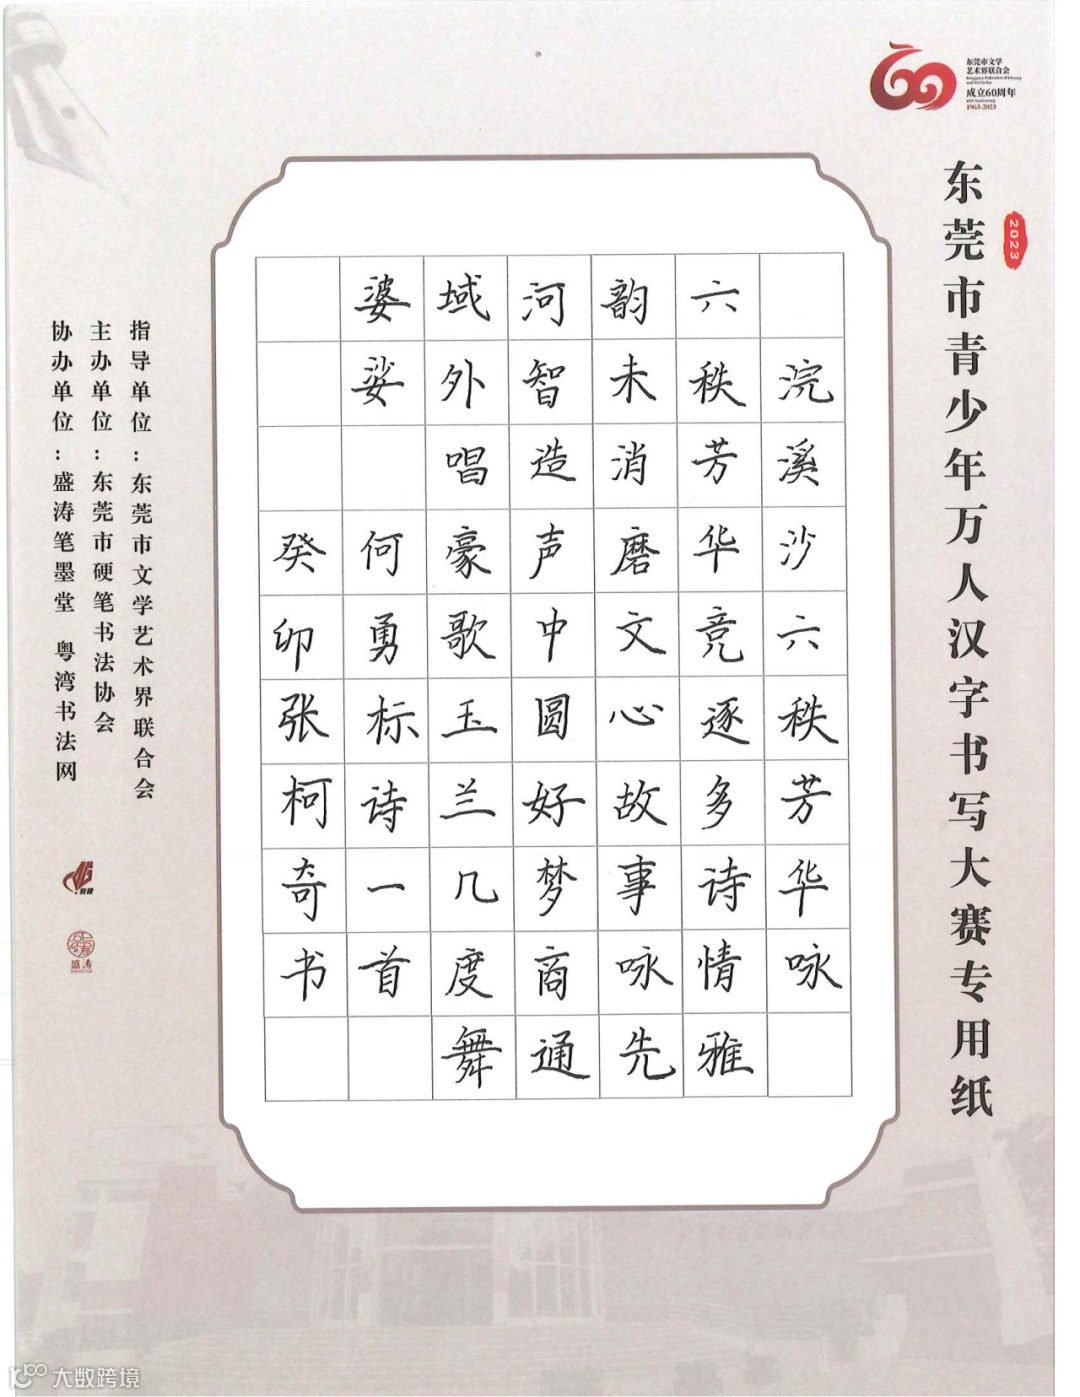 60
东莞市文学
艺术界联合会
Dongguan Federation of Literary
and Art Circles
成立60周年
60th Anniversary
1963-2023
2023
东莞市青少年万人汉字书写大赛专用纸
浣溪沙六秩芳华咏
六秩芳华竞逐多诗情雅
韵未消磨文心故事咏先
河智造声中圆好梦商通
域外唱豪歌玉兰几度舞
婆娑 何勇标诗一首
癸卯张柯奇书
指导单位:东莞市文学艺术界联合会
主办单位:东莞市硬笔书法协会
协办单位:盛涛笔墨堂 粤湾书法网
盛涛
大数跨境